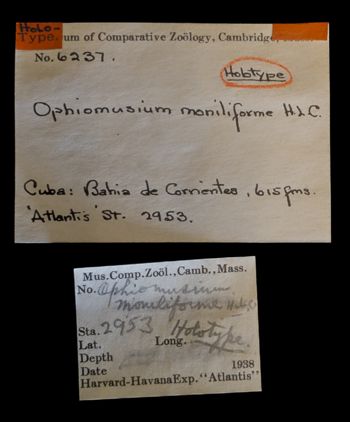 Holo-
Type. um of Comparative Zoölogy, Cambridge,
No. 6237.
Holotype
Ophiomusium moniliforme H.L.C.
Cuba: Bahia de Corrientes, 615 fms.
'Atlantis' St. 2953.
Mus. Comp. Zoöl., Camb., Mass.
No. Ophiomusium
moniliforme H.L.C.
Sta. 2953 Holotype.
Lat. Long.
Depth
Date 1938
Harvard-Havana Exp. "Atlantis"